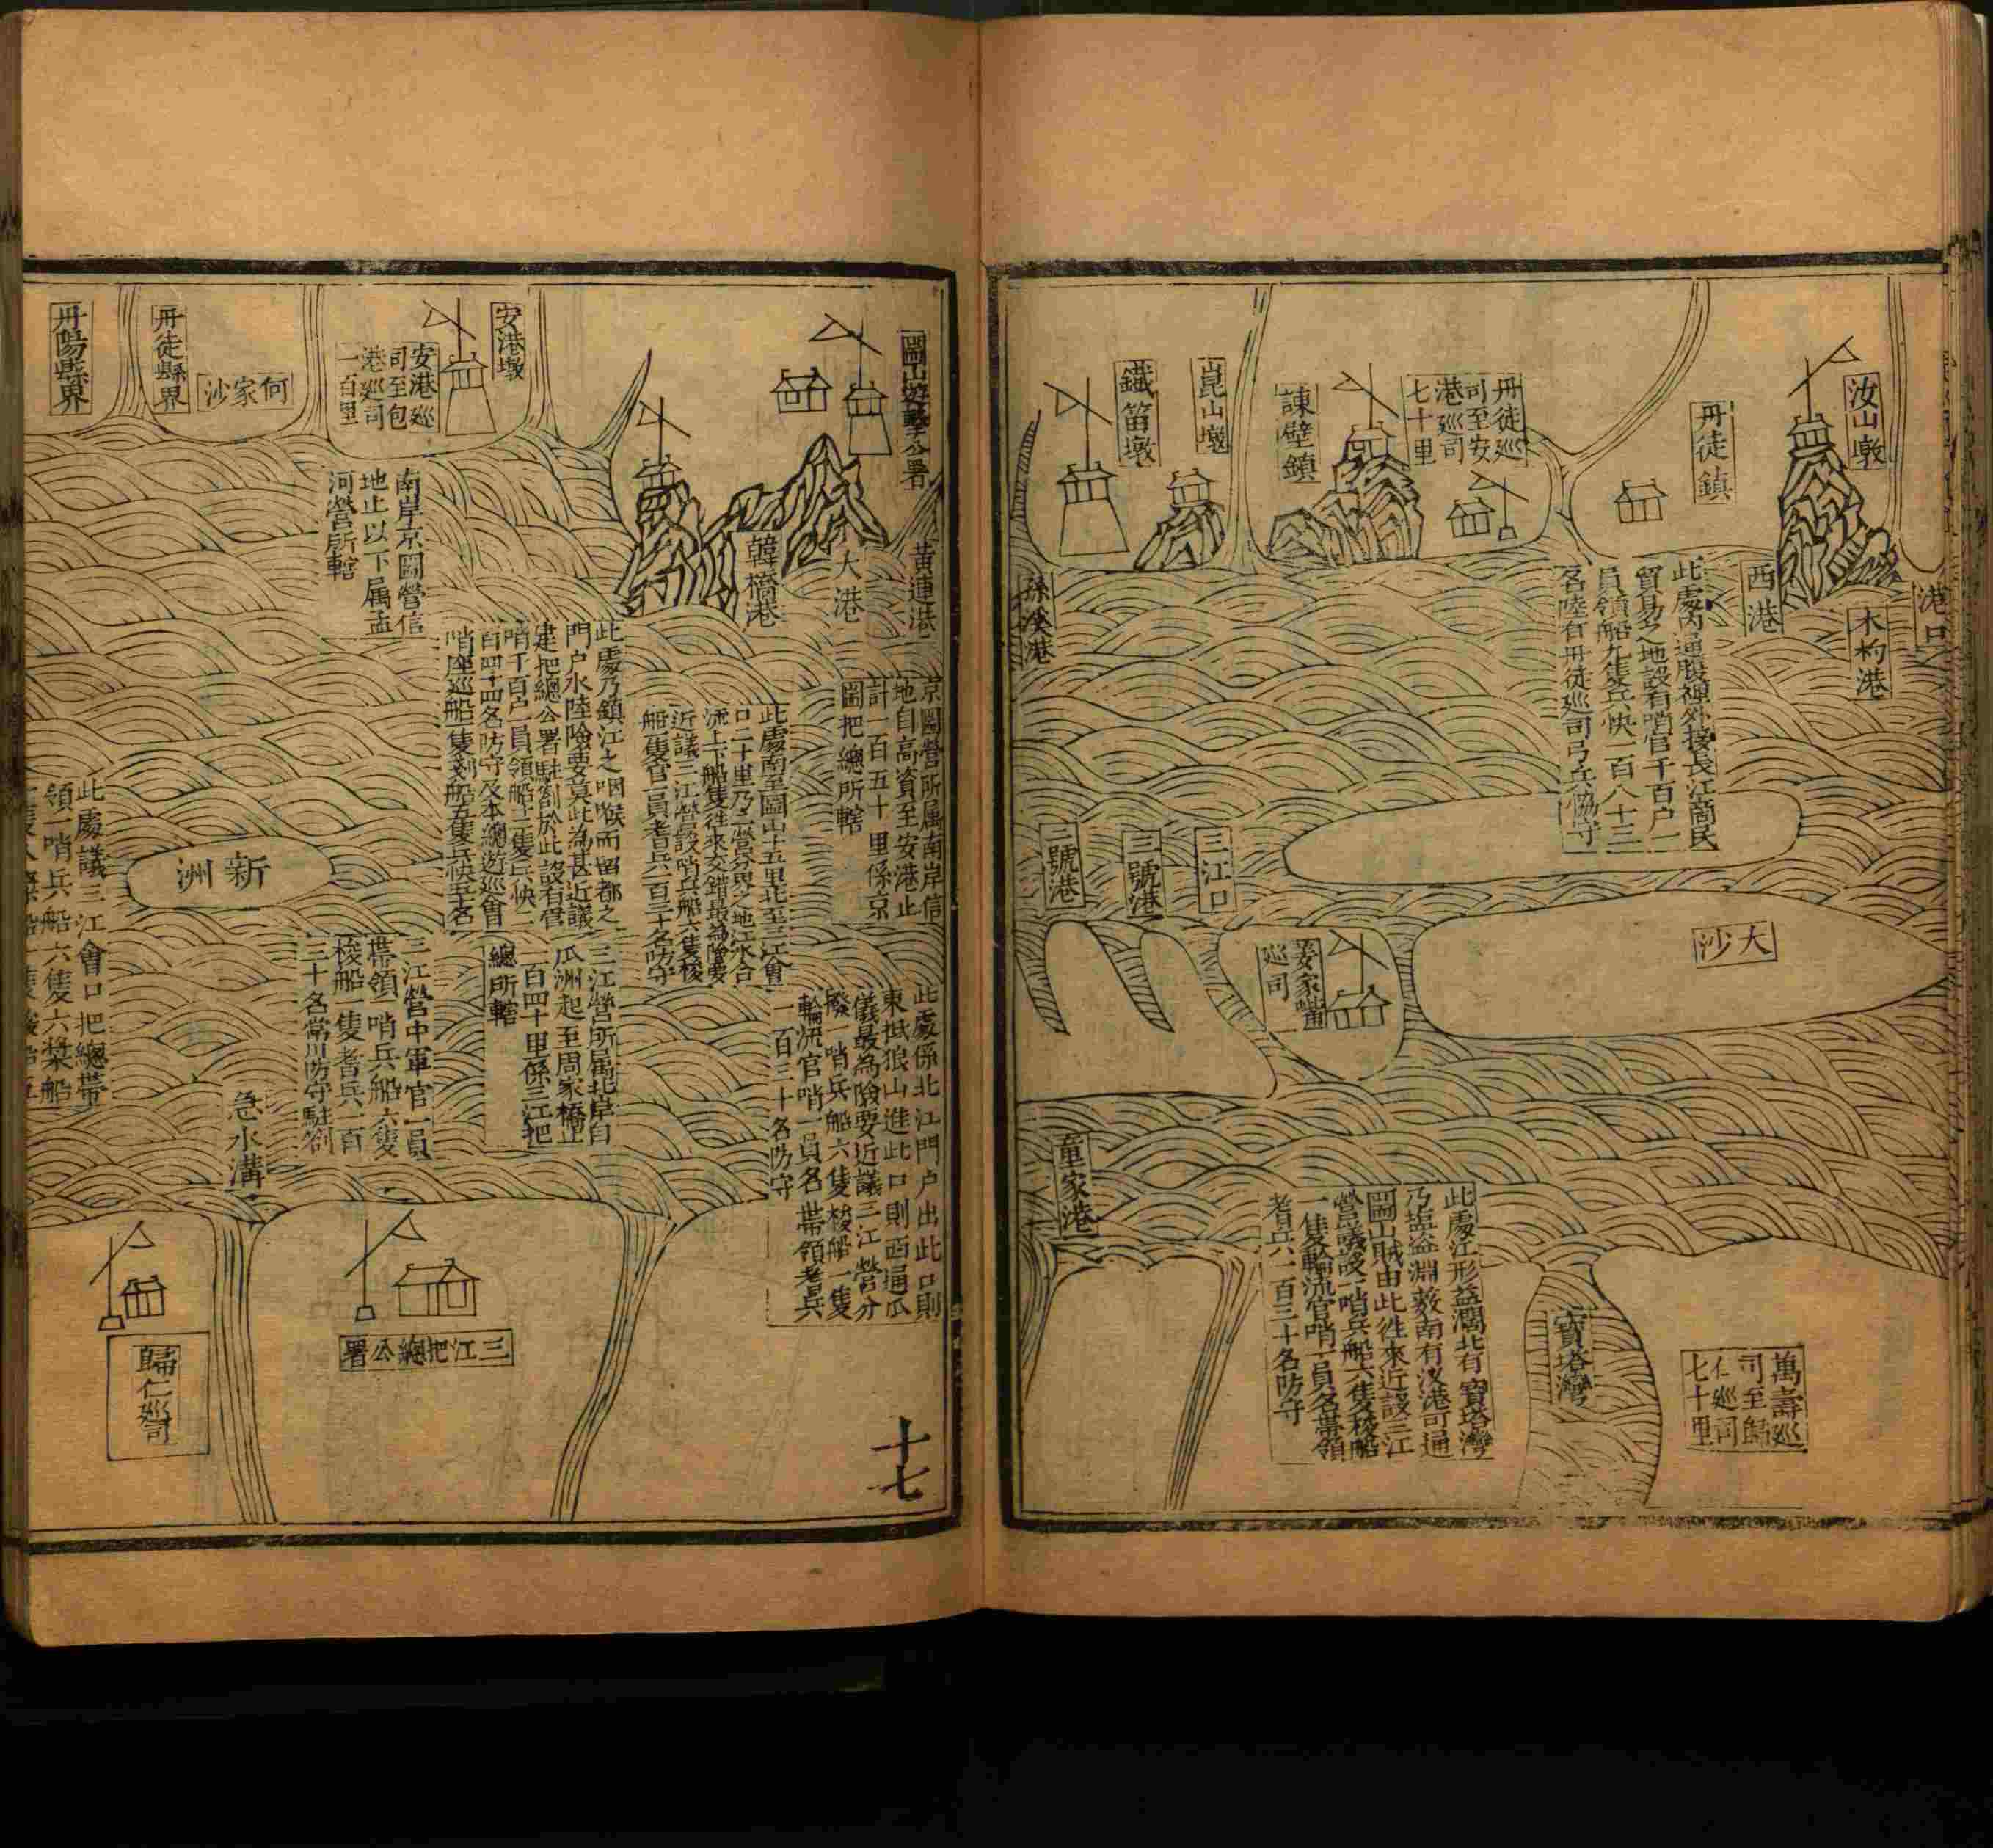 港口
汝山墩
木杓港
西港
丹徒鎮
此處內通腹裡外接長江商民
貿易之地設有哨官千百户一
員領船九隻兵快一百八十三
名陸有丹徒巡司弓兵協守
丹徒巡
司至安
港巡司
七十里
諫壁鎮
崑山墩
鐵笛墩
孫溪港
大沙
三江口
三號港
二號港
姜家嘴
巡司
童家港
此處江形益濶北有寶塔灣
乃盐盜淵藪南有汊港可通
圌山賊由此徃來近設三江
營議設一哨兵船六隻梭船
一隻輪流官哨一員名帶領
耆兵一百三十名防守
寶塔灣
萬壽巡
司至歸
仁巡司
七十里
圌山遊擊公署
黃連港
大港
韓橋港
京圌營所属南岸信
地自高資至安港止
計一百五十里係京
圌把總所轄
此處南至圌山十五里北至三江會
口二十里乃二營分界之地江水合
流上下船隻徃來交錯最為險要
近議三江營設哨兵船六隻梭
船一隻官一員耆兵一百三十名防守
此處乃鎮江之咽喉而留都之
門户水陸險要莫此為甚近議
建把總公署駐劄於此設有官
哨千百户一員領船十二隻兵快二
百四十四名防守及本總遊巡會
哨座巡船一隻剗船五隻兵快五十名
此處係北江門户出此口則
東抵狼山進此口則西通瓜
儀最為險要近議三江營分
撥一哨兵船六隻梭船一隻
輪流官哨一員名帶領耆兵
一百三十名防守
三江營所属北岸自
瓜洲起至周家橋止
一百四十里係三江把
總所轄
安港墩
安港巡
司至包
港巡司
一百里
南岸京圌營信
地止以下属孟
河營所轄
何家沙
丹徒縣界
丹陽縣界
新洲
三江營中軍官一員
帶領一哨兵船六隻
梭船一隻耆兵一百
三十名常川防守駐劄
急水溝
此處議三江會口把總帶
領一哨兵船六隻六槳船
三江把總公署
歸仁巡司
十七